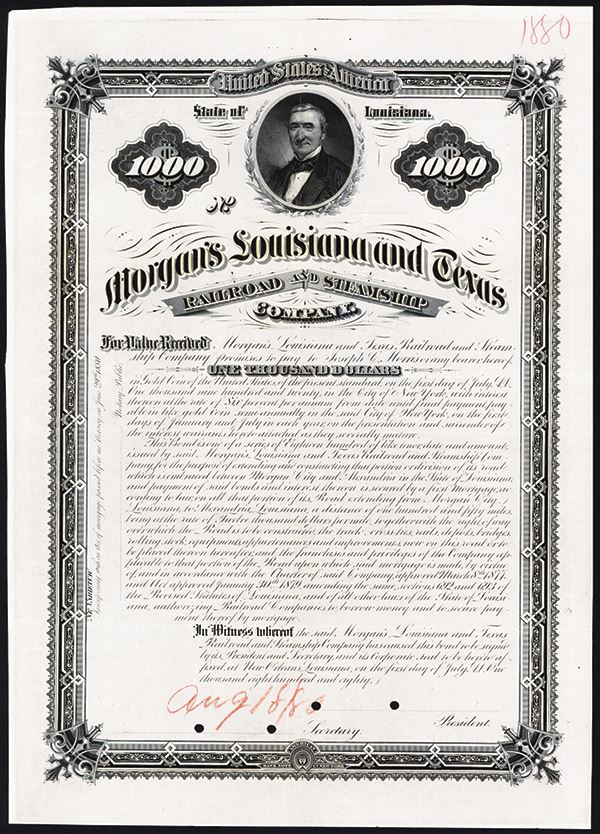 1880
United States of America
State of Louisiana.
1000 1000
No
Morgan's Louisiana and Texas
RAILROAD AND STEAMSHIP
COMPANY.
For Value Received, Morgan's Louisiana and Texas Railroad and Steam-
ship Company promises to pay to Joseph C. Morris or any bearer hereof
ONE THOUSAND DOLLARS
in Gold Coin of the United States, of the present standard, on the first day of July, A.D.
One thousand nine hundred and twenty, in the City of New York, with interest
thereon at the rate of Six per cent per annum from date until final payment, pay-
able in like gold coin, semi-annually in the said City of New York, on the first
days of January and July in each year, on the presentation and surrender of
the interest warrants hereto attached as they severally mature.
This Bond is one of a series of Eighteen hundred of like time, date and amount,
issued by said Morgan's Louisiana and Texas Railroad and Steamship Com-
pany for the purpose of extending and constructing that portion or division of its road
which is embraced between Morgan City and Alexandria in the State of Louisiana,
and payment of said bonds and interest thereon is secured by a first Mortgage, ac-
cording to law, on all that portion of its Road extending from Morgan City
Louisiana, to Alexandria, Louisiana, a distance of one hundred and fifty miles,
being at the rate of Twelve thousand dollars per mile, together with the right of way
over which the Road is to be constructed, the track, cross ties, rails, depots, bridges,
rolling stock, equipments, appurtenances and improvements now on said road or to
be placed thereon hereafter, and the franchises and privileges of the Company ap-
plicable to that portion of the Road upon which said mortgage is made, by virtue
of, and in accordance with the Charter of said Company, approved March 8th 1877,
and Act approved January 30th 1879, amending the same, sections 692 and 693 of
the Revised Statutes of Louisiana, and of all other laws of the State of Louisi-
ana, authorizing Railroad Companies to borrow money and to secure pay-
ment thereof by mortgage.
In Witness whereof the said, Morgan's Louisiana and Texas
Railroad and Steamship Company has caused this bond to be signed
by its President and Secretary, and its Corporate seal to be hereto af-
fixed, at New Orleans, Louisiana, on the first day of July, A.D. One
thousand eight hundred and eighty.
Aug 18/80
President.
Secretary.
NE VARIETUR
Notary Public.